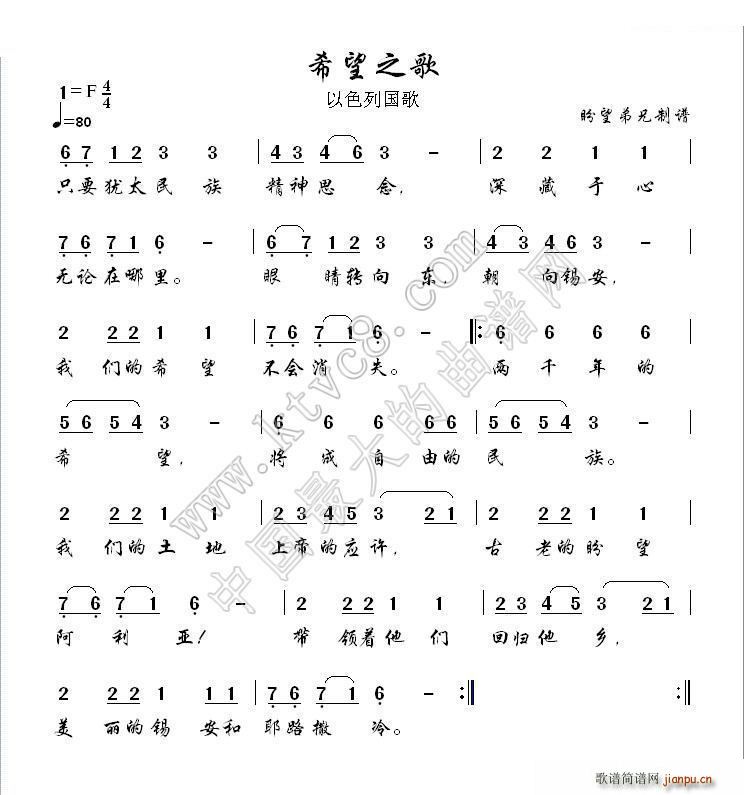 希望之歌
以色列国歌
1=F 4/4
♩=80
盼望弟兄制谱
6 7 1 2 3 3 | 4 3 4 6 3 - | 2 2 1 1
只要犹太民族 精神思念, 深藏于心
7 6 7 1 6 - | 6 7 1 2 3 3 | 4 3 4 6 3 -
无论在哪里。 眼睛转向东, 朝向锡安,
2 2 2 1 1 | 7 6 7 1 6 - ‖: 6 6 6 6
我们的希望 不会消失。 两千年的
5 6 5 4 3 - | 6 6 6 6 6 | 5 6 5 4 3 -
希望, 将成自由的民族。
2 2 2 1 1 | 2 3 4 5 3 2 1 | 2 2 2 1 1
我们的土地 上帝的应许, 古老的盼望
7 6 7 1 6 - | 2 2 2 1 1 | 2 3 4 5 3 2 1
阿利亚! 带领着他们 回归他乡,
2 2 2 1 1 1 | 7 6 7 1 6 - :‖ :‖
美丽的锡安和 耶路撒冷。
www.ktvc8.com
中国最大的曲谱网
歌谱简谱网
jianpu.cn